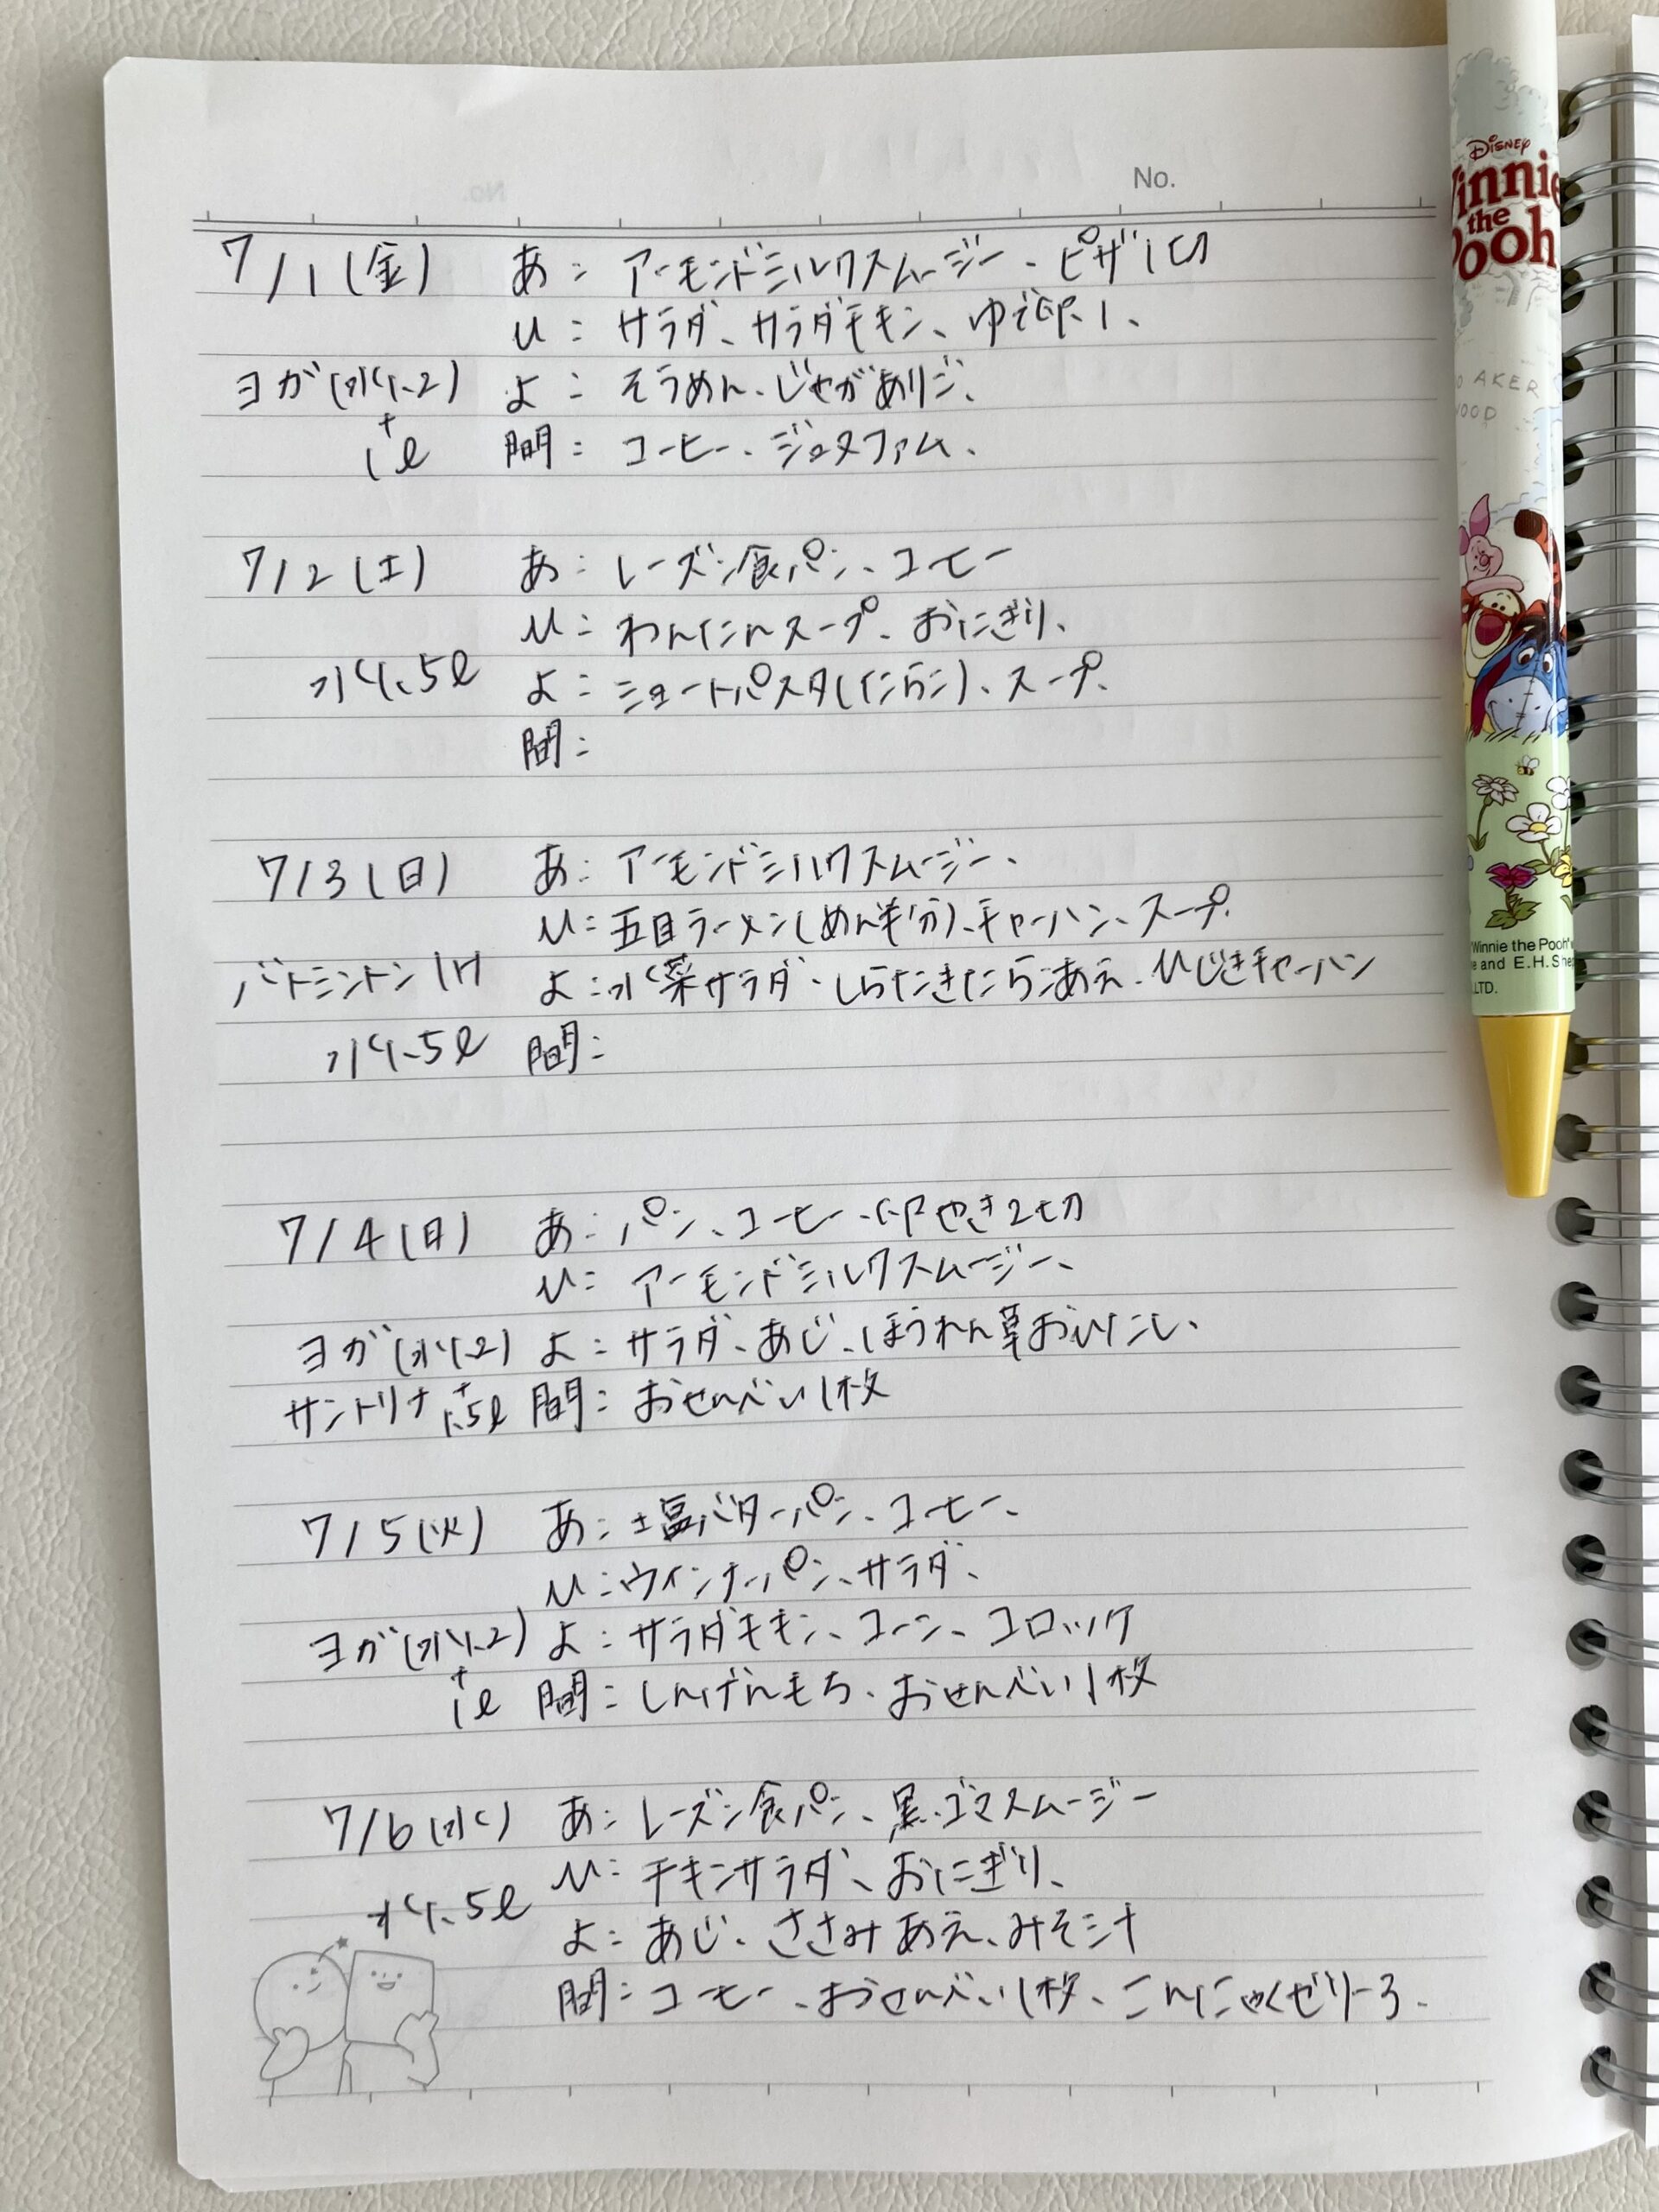 No.
7/1(金) あ: アーモンドミルクスムージー、ピザ1切
ひ: サラダ、サラダチキン、ゆで卵1、
ヨガ(水1.2) よ: そうめん、じゃがありご、
+
1ℓ 間: コーヒー、
7/2(土) あ: レーズン食パン、コーヒー
ひ: わんたんスープ、おにぎり、
水1.5ℓ よ: ショートパスタ(たらこ)、スープ、
間:
7/3(日) あ: アーモンドミルクスムージー、
ひ: 五目ラーメン(めん半分)、チャーハン、スープ、
バドミントン1H よ: 水菜サラダ、しらたきたらこあえ、ひじきチャーハン
水1.5ℓ 間:
7/4(日) あ: パン、コーヒー、卵やき2切
ひ: アーモンドミルクスムージー、
ヨガ(水1.2) よ: サラダ、あじ、ほうれん草おひたし、
+
サントリナ 1.5ℓ 間: おせんべい1枚
7/5(火) あ: 塩バターパン、コーヒー、
ひ: ウインナーパン、サラダ、
ヨガ(水1.2) よ: サラダチキン、コーン、コロッケ
+
1ℓ 間: しんげんもち、おせんべい1枚
7/6(水) あ: レーズン食パン、黒ゴマスムージー
ひ: チキンサラダ、おにぎり、
水1.5ℓ
よ: あじ、ささみあえ、みそ汁
間: コーヒー、おせんべい1枚、こんにゃくゼリー3、
Disney
Winnie
the
Pooh
"Winnie the Pooh"
and E.H.
LTD.